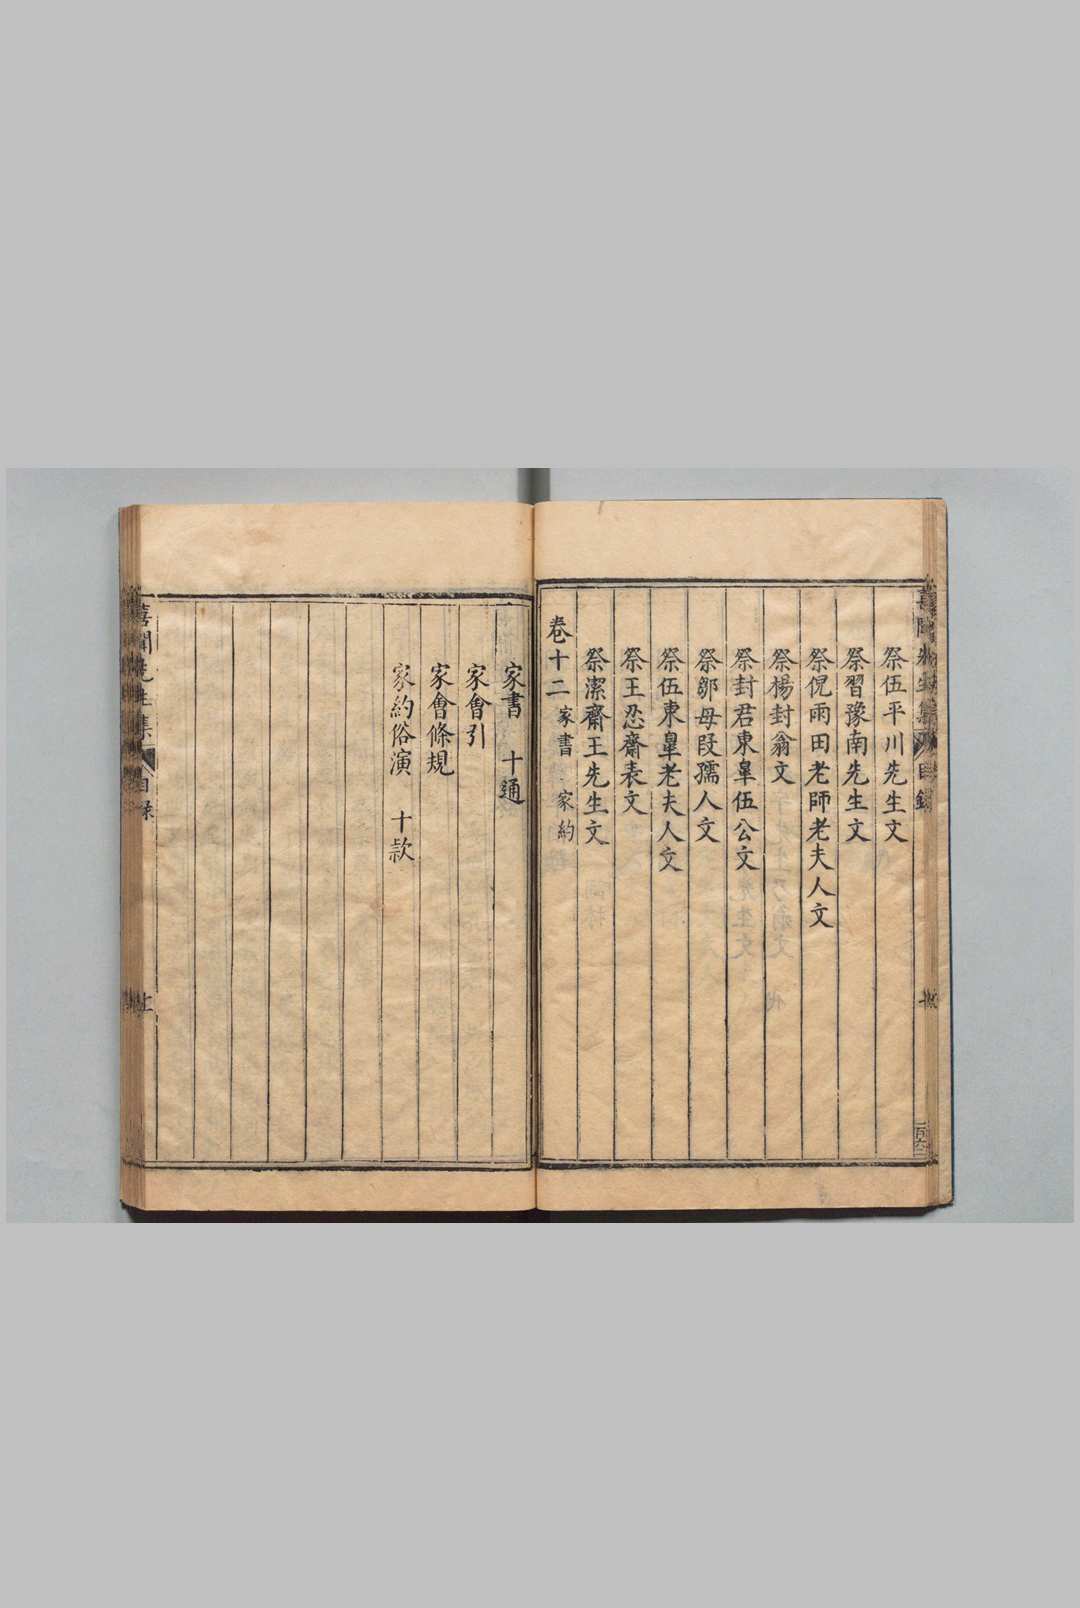 祭伍平川先生文
祭習豫南先生文
祭倪雨田老師老夫人文
祭楊封翁文
祭封君東臯伍公文
祭鄒母段孺人文
祭伍東臯老夫人文
祭王忍齋表文
祭潔齋王先生文
卷十二 家書 家約
家書 十通
家會引
家會條規
家約俗演 十款
喜聞先生集 目録